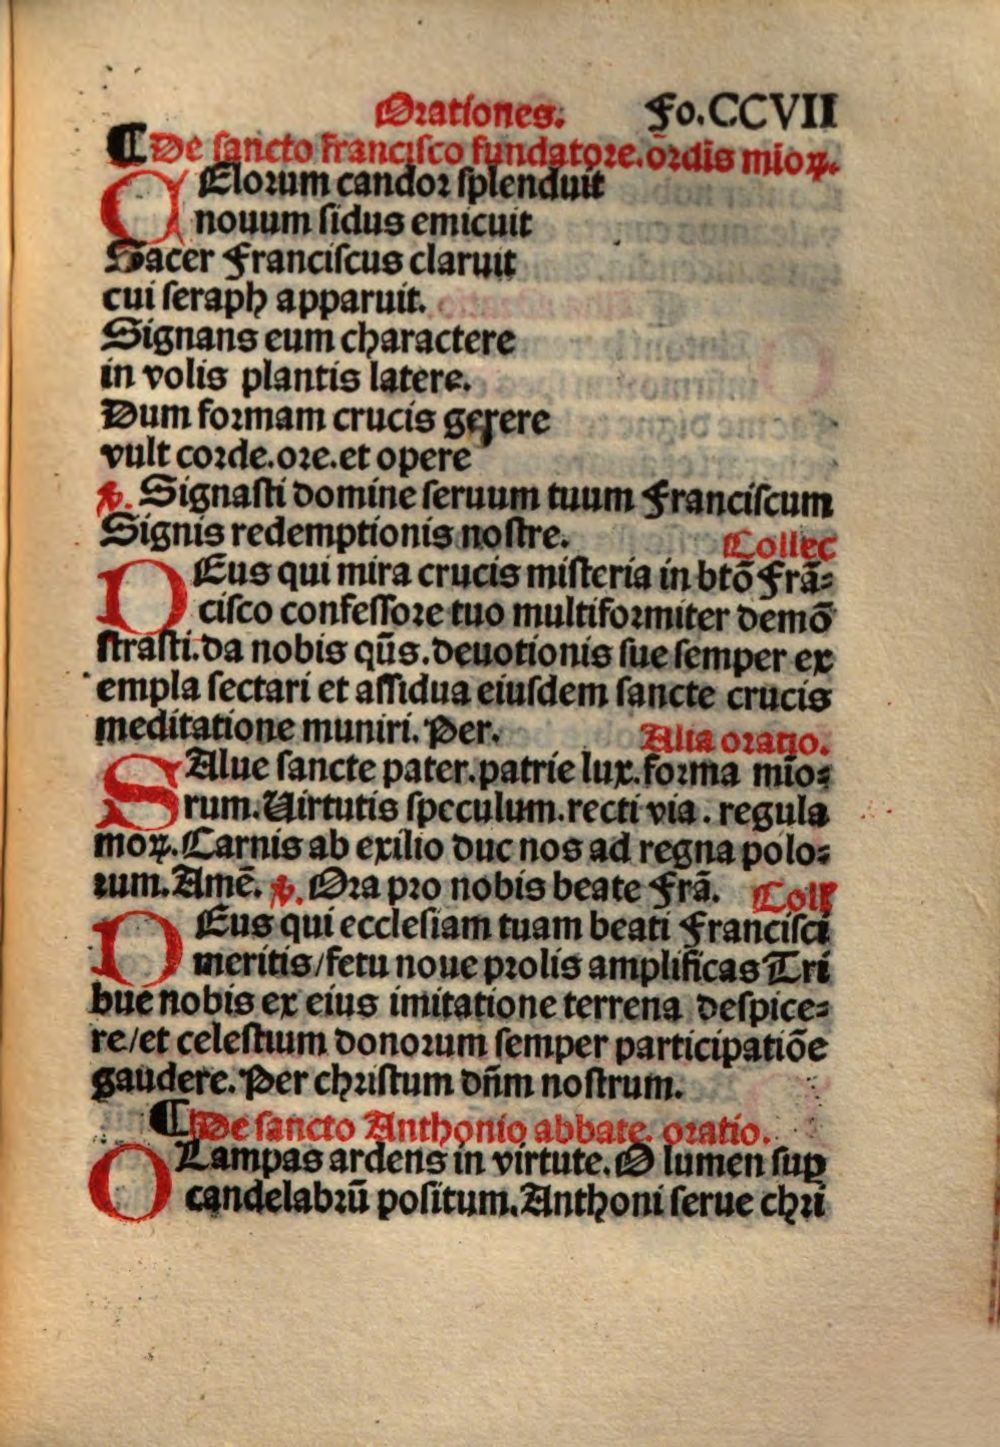 Orationes. Fo.CCVII
¶De sancto francisco fundatore.ordīs mīoꝝ.
CElorum candor splenduit
nouum sidus emicuit
Sacer Franciscus claruit
cui seraph apparuit.
Signans eum charactere
in volis plantis latere.
Dum formam crucis gerere
vult corde.ore.et opere
℣. Signasti domine seruum tuum Franciscum
Signis redemptionis nostre. Collec
DEus qui mira crucis misteria in btō Frā-
cisco confessore tuo multiformiter demō
strasti.da nobis qūs.deuotionis sue semper ex
empla sectari et assidua eiusdem sancte crucis
meditatione muniri.Per. Alia oratio.
SAlue sancte pater.patrie lux.forma mīo-
rum.Uirtutis speculum.recti via.regula
moꝝ.Carnis ab exilio duc nos ad regna polo-
rum.Amē. ℣. Ora pro nobis beate Frā. Coll
DEus qui ecclesiam tuam beati Francisci
meritis/fetu noue prolis amplificas Tri
bue nobis ex eius imitatione terrena despice-
re/et celestium donorum semper participatiōe
gaudere.Per christum dn̄m nostrum.
¶De sancto Anthonio abbate. oratio.
O Lampas ardens in virtute.O lumen suꝑ
candelabrū positum.Anthoni serue chri